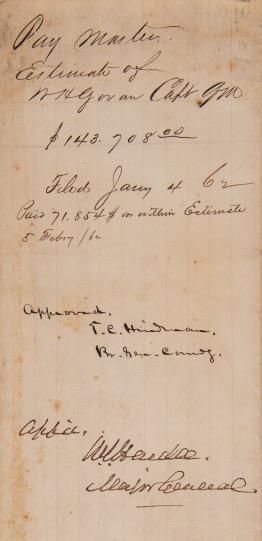 Pay Master.
Estimate of
W H Govan Capt QM
$ 143.708 00
Filed Jany 4 62
Paid 71.854 $ on within Estimate
5 Febry /62
Approved.
T. C. Hindman,
Br. Gen. Comdg.
W J Hardee.
Major General